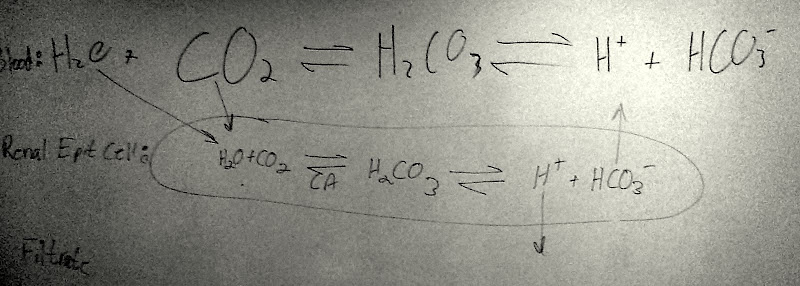 Blood: H₂O + CO₂ ⇌ H₂CO₃ ⇌ H⁺ + HCO₃⁻
Renal Ept Cell: H₂O + CO₂ ⇌ H₂CO₃ ⇌ H⁺ + HCO₃⁻
CA
Filtrate